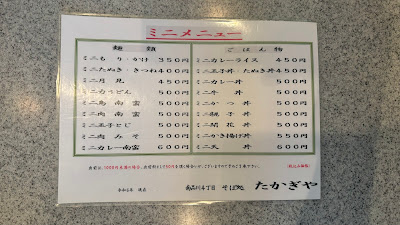 ミニメニュー
麺類
ミニもり・かけ 350円
ミニたぬき・きつね 400円
ミニ月見 450円
ミニカうどん 500円
ミニ鳥南蛮 500円
ミニ肉南蛮 500円
ミニ玉子とじ 500円
ミニ肉みそ 500円
ミニカレー南蛮 600円
ごはん物
ミニカレーライス 450円
ミニ玉子丼・たぬき丼 450円
ミニカレー丼 500円
ミニ牛丼 500円
ミニかつ丼 500円
ミニ親子丼 500円
ミニ開花丼 500円
ミニかき揚げ丼 550円
ミニ天丼 600円
(税込み価格)
南品川4丁目 そば処 たかぎや